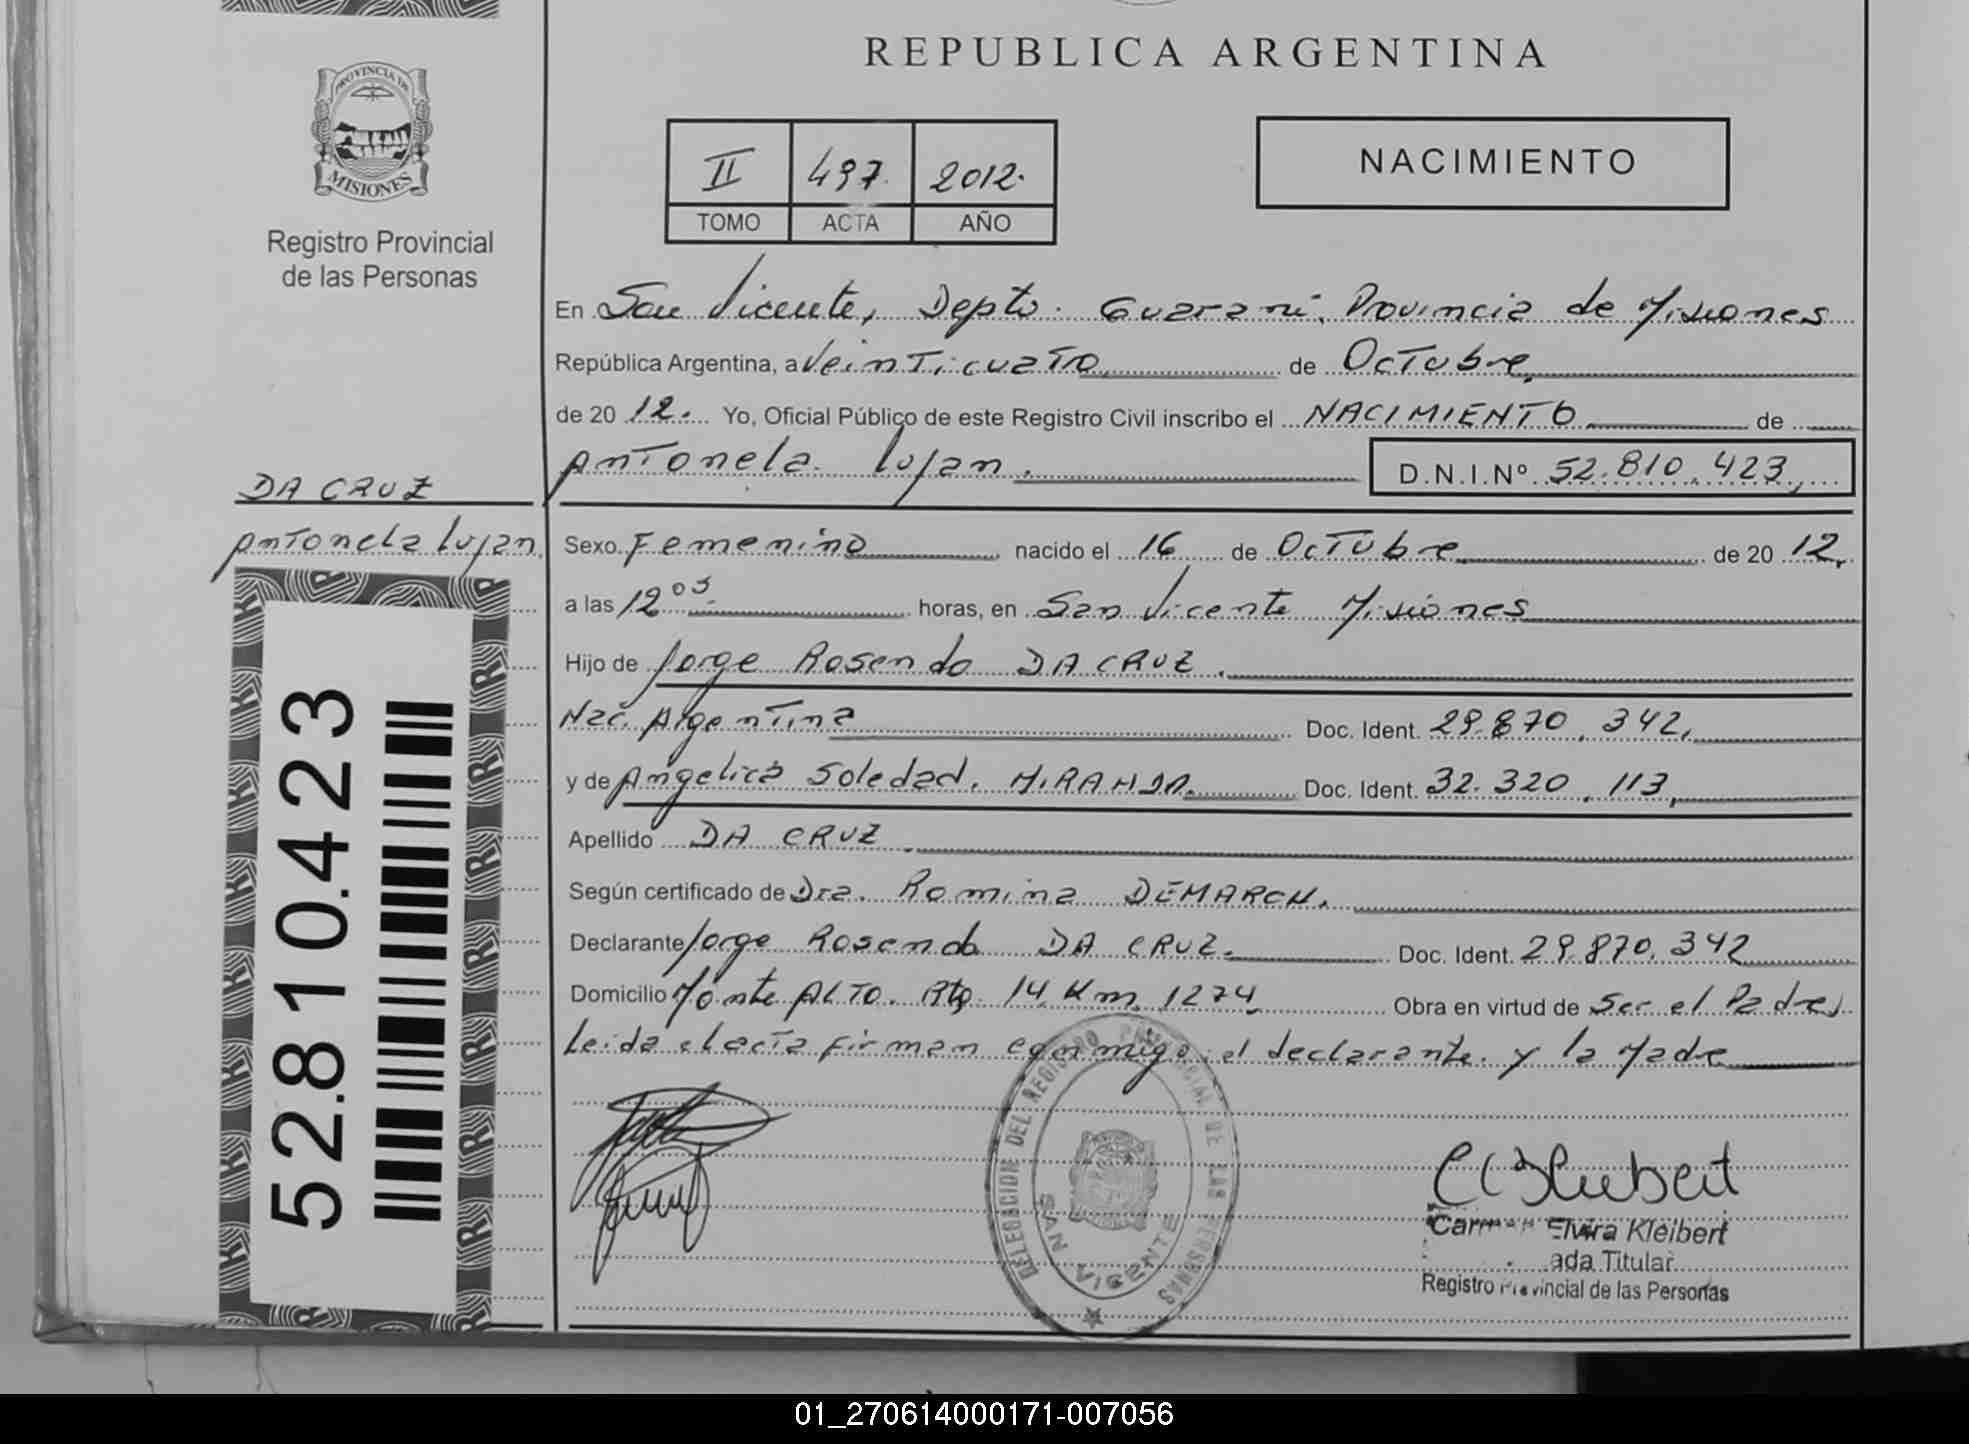 REPUBLICA ARGENTINA
PROVINCIA DE
MISIONES
Registro Provincial
de las Personas
II 497. 2012.
TOMO ACTA AÑO
NACIMIENTO
En San Vicente, Depto. Guarani. Provincia de Misiones
República Argentina, a Veinticuatro de Octubre.
de 20 12. Yo, Oficial Público de este Registro Civil inscribo el NACIMIENTO de
Antonela Lujan. D.N.I.Nº 52.810.423,
DA CRUZ
Antonela Lujan.
Sexo Femenino nacido el 16 de Octubre de 20 12,
a las 12 05. horas, en San Vicente Misiones
Hijo de Jorge Rosendo DA CRUZ.
Nac. Argentina Doc. Ident. 29.870.342,
y de Angelica Soledad. MIRANDA. Doc. Ident. 32.320.113,
Apellido DA CRUZ.
Según certificado de Dra. Romina DEMARCH.
Declarante Jorge Rosendo DA CRUZ. Doc. Ident. 29.870.342
Domicilio Monte ALTO. Rta. 14 Km. 1274. Obra en virtud de Ser el Padre,
Leida el acta firman conmigo, el declarante. y la Madre
52.810.423
DELEGACION DEL REGISTRO PROVINCIAL DE LAS PERSONAS
SAN VICENTE
Elvira Kleibert
Titular
Registro Provincial de las Personas
01_270614000171-007056